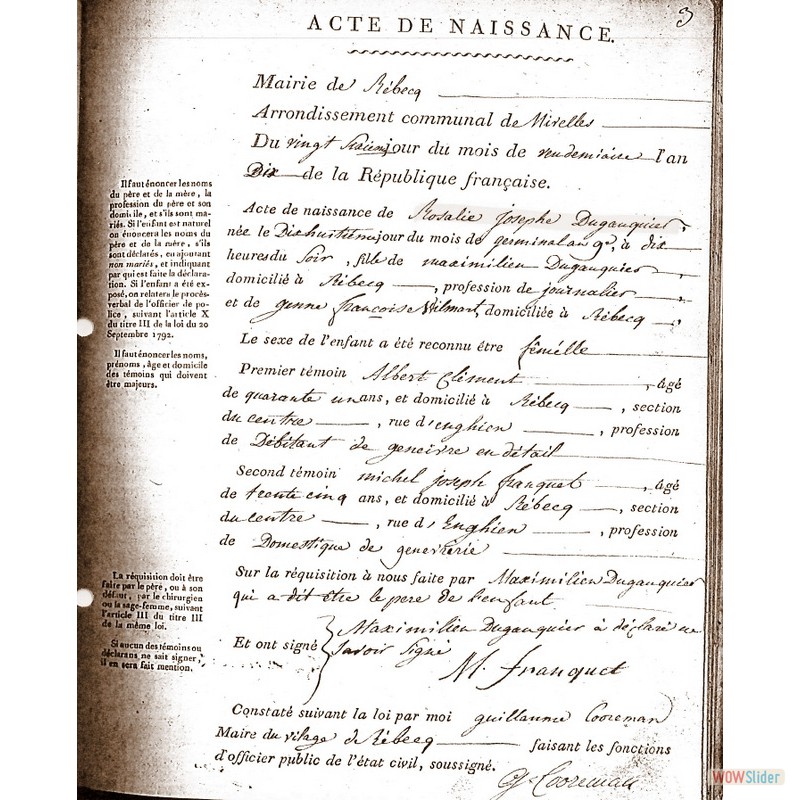 3
ACTE DE NAISSANCE.
Mairie de Rébecq
Arrondissement communal de Nivelles
Du vingt jour du mois de vendemiaire l'an
Dix de la République française.
Acte de naissance de Rosalie josephe Dugauquier,
née le Dixhuitieme jour du mois de germinal an 9e, à dix
heures du Soir, fille de maximilien Dugauquier,
domicilié à Rébecq, profession de journalier,
et de françoise Wilmart, domiciliée à Rébecq;
Le sexe de l'enfant a été reconnu être fémélle
Premier témoin Albert Clément, âgé
de quarante un ans, et domicilié à Rébecq, section
du centre, rue d'enghien, profession
de Débitant de geneivre en détail
Second témoin michel joseph franquet, âgé
de trente cinq ans, et domicilié à Rébecq, section
du centre, rue d'Enghien, profession
de Domestique de genevrerie
Sur la réquisition à nous faite par Maximilien Dugauquier
qui a dit être le pere de l'enfant
Et ont signé
Maximilien Dugauquier à déclaré ne
Savoir Signé
M. franquet
Constaté suivant la loi par moi guillaume Cooreman
Maire du vilage de Rébecq faisant les fonctions
d'officier public de l'état civil, soussigné.
G. Cooreman
Il faut énoncer les noms
du père et de la mère, la
profession du père et son
domicile, et s'ils sont ma-
riés. Si l'enfant est naturel
on énoncera les noms du
père et de la mère, s'ils
sont déclarés, en ajoutant
non mariés, et indiquant
par qui est faite la déclara-
tion. Si l'enfant a été ex-
posé, on relatera le procès-
verbal de l'officier de po-
lice, suivant l'article X
du titre III de la loi du 20
Septembre 1792.
Il faut énoncer les noms,
prénoms, âge et domicile
des témoins qui doivent
être majeurs.
La réquisition doit être
faite par le père, ou à son
défaut, par le chirurgien
ou la sage-femme, suivant
l'article III du titre III
de la même loi.
Si aucun des témoins ou
déclarans ne sait signer,
il en sera fait mention.
WOWSlider